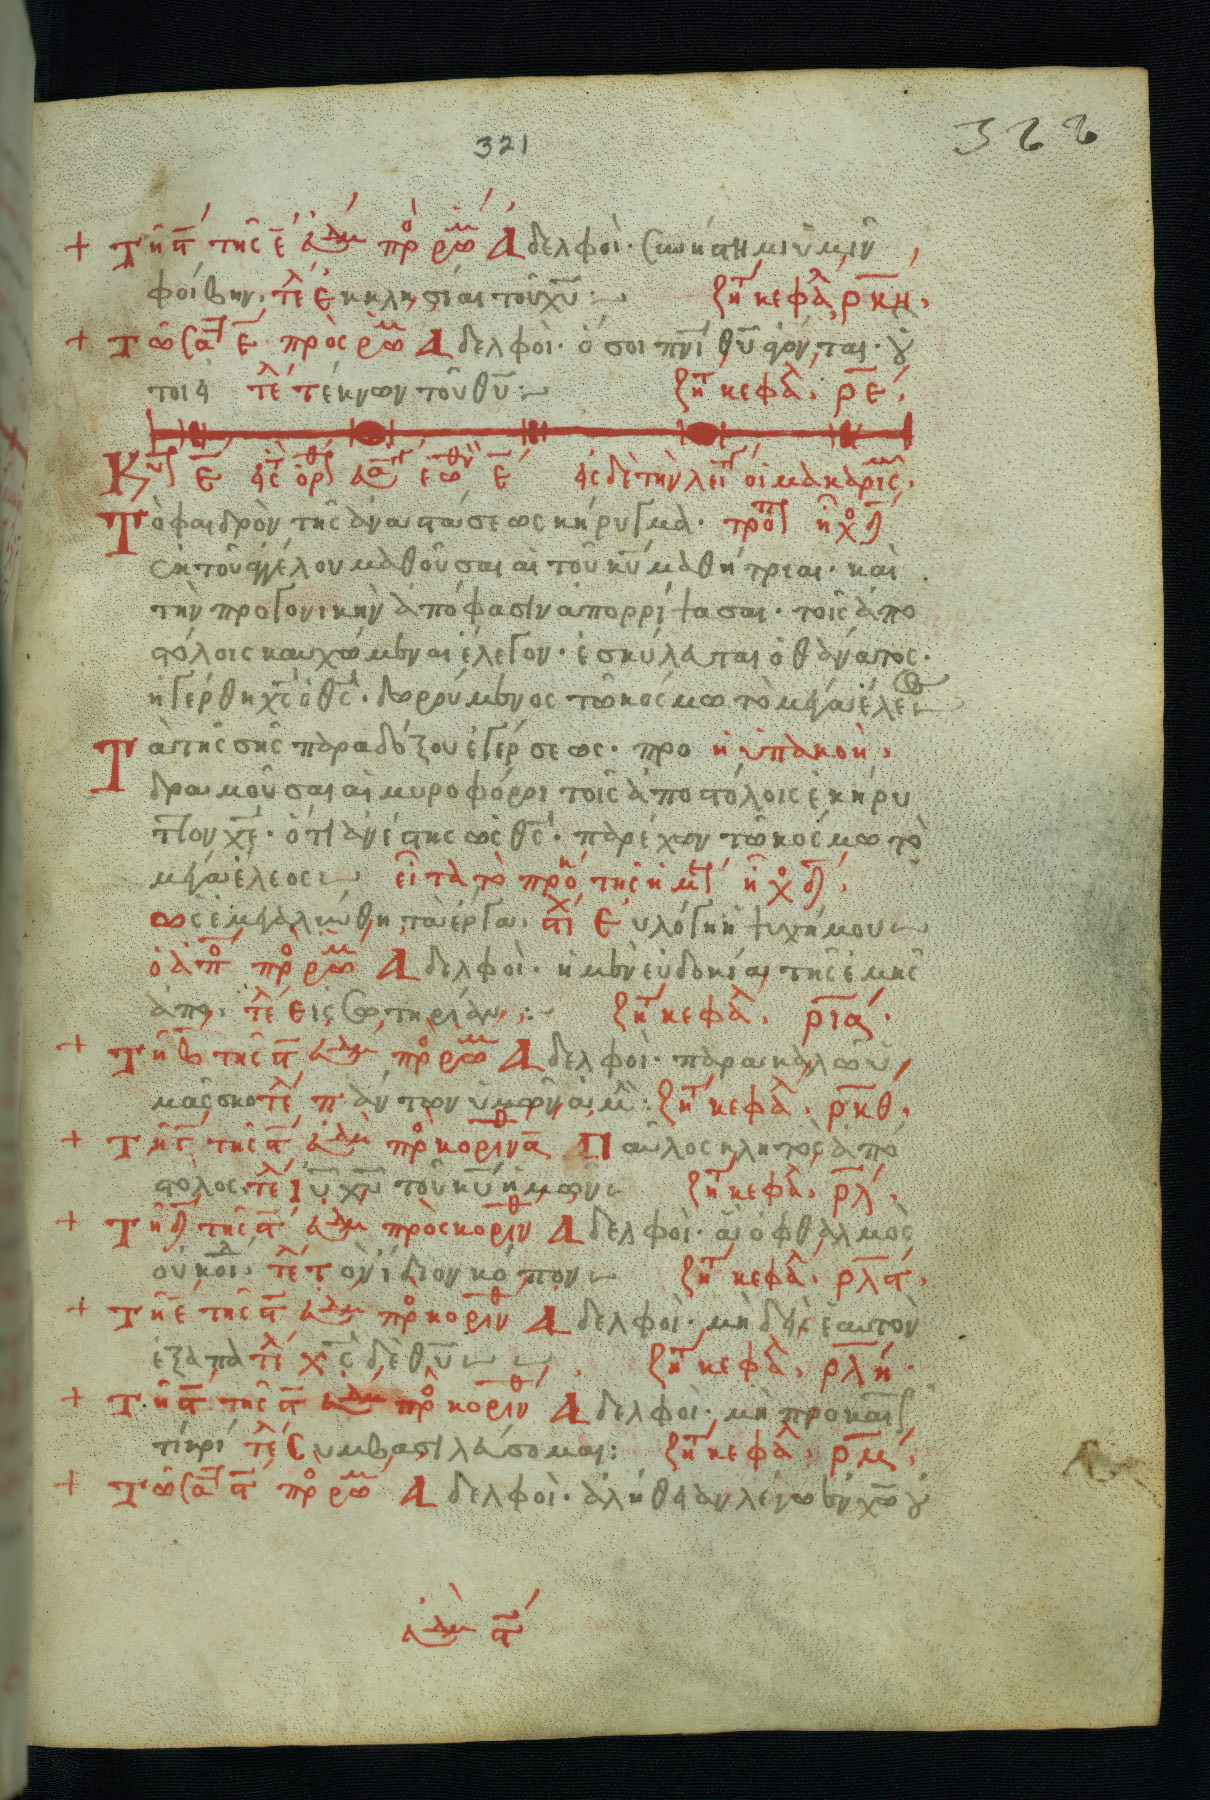 321
322
+ Τῆ ϛ̄ τῆς ε̄ ἑβδομ πρ ρωμ Ἀδελφοὶ· συνίστημι ὑμῖν
φοίβην· τέ ἐκκλησίαι τοῦ χ̅υ̅ : ζή κεφά, ρκη,
+ Τῶ σα ε̄ πρὸς ρωμ Ἀδελφοὶ· ὅσοι πνι θ̅υ̅ ἄγονται· οὗ
τοι εἰ τέ τέκνων τοῦ θ̅υ̅ : ζή κεφά, ρε,
Κυ ε̄ εἰς ὄρ ε̄ εἰς δὲ τὴν λει οἱ μακαρις,
Τὸ φαιδρὸν τῆς ἀναστάσεως κήρυγμα· τροπ ἦχ δ
ἐκ τοῦ ἀγγέλου μαθοῦσαι αἱ τοῦ κ̅υ̅ μαθήτριαι· καὶ
τὴν προγονικὴν ἀπόφασιν ἀπορρίψασαι· τοῖς ἀπο
στόλοις καυχώμεναι ἔλεγον· ἐσκύλευται ὁ θάνατος·
ἠγέρθη χ̅ς̅ ὁ θ̅ς̅· δωρούμενος τῶ κόσμω τὸ μέγα ἔλε
Τὰ τῆς σῆς παραδόξου ἐγέρσεως· προ ἡ ὑπακοὴ,
δραμοῦσαι αἱ μυροφόροι τοῖς ἀποστόλοις ἐκήρυ
ττον χ̅ε̅· ὅτι ἀνέστης ὡς θ̅ς̅· παρέχων τῶ κόσμω τὸ
μέγα ἔλεος εἶτα τὸ προκ τῆς ἡμ ἦχ δ,
ὡς ἐμεγαλύνθη τὰ ἔργα, στί Εὐλόγει ἡ ψυχή μου
ὁ ἀπο πρ ρωμ Ἀδελφοὶ· ἡ μὲν εὐδοκία τῆς ἐμῆς
ἀπο, τέ εἰς σωτηρίαν : ζή κεφά, ρια·
+ Τῆ β τῆς ϛ̄ ἑβδομ πρ ρωμ Ἀδελφοὶ· παρακαλῶ ὑ
μᾶς σκο τέ πάντων ὑμῶν ἀμ : ζή κεφά, ρκθ,
+ Τῆ γ τῆς ϛ̄ ἑβδομ πρ κοριν α Παῦλος κλητὸς ἀπό
στολος, τέ ι̅υ̅ χ̅υ̅ τοῦ κ̅υ̅ ἡμῶν ζή κεφά, ρλ,
+ Τῆ δ τῆς ϛ̄ ἑβδομ πρὸς κοριν Ἀδελφοὶ· ἃ ὀφθαλμὸς
οὐκ οι· τέ τὸν ἴδιον κόπον ζή κεφά, ρλα,
+ Τῆ ε τῆς ϛ̄ ἑβδομ πρ κοριν Ἀδελφοὶ· μηδεὶς ἑαυτὸν
ἐξαπα τέ χ̅ς̅ δὲ θ̅υ̅ ζή κεφά, ρλη·
+ Τῆ ϛ̄ τῆς ϛ̄ ἑβδομ πρ κοριν Ἀδελφοὶ· μὴ πρὸ και
τί κρί τέ Συμβασιλεύσομαι : ζή κεφά, ρμ,
+ Τῶ σα ϛ̄ πρ ρωμ Ἀδελφοὶ· ἀλήθειαν λέγω ἐν χ̅ω̅ οὐ
ἑβδομ ϛ̄